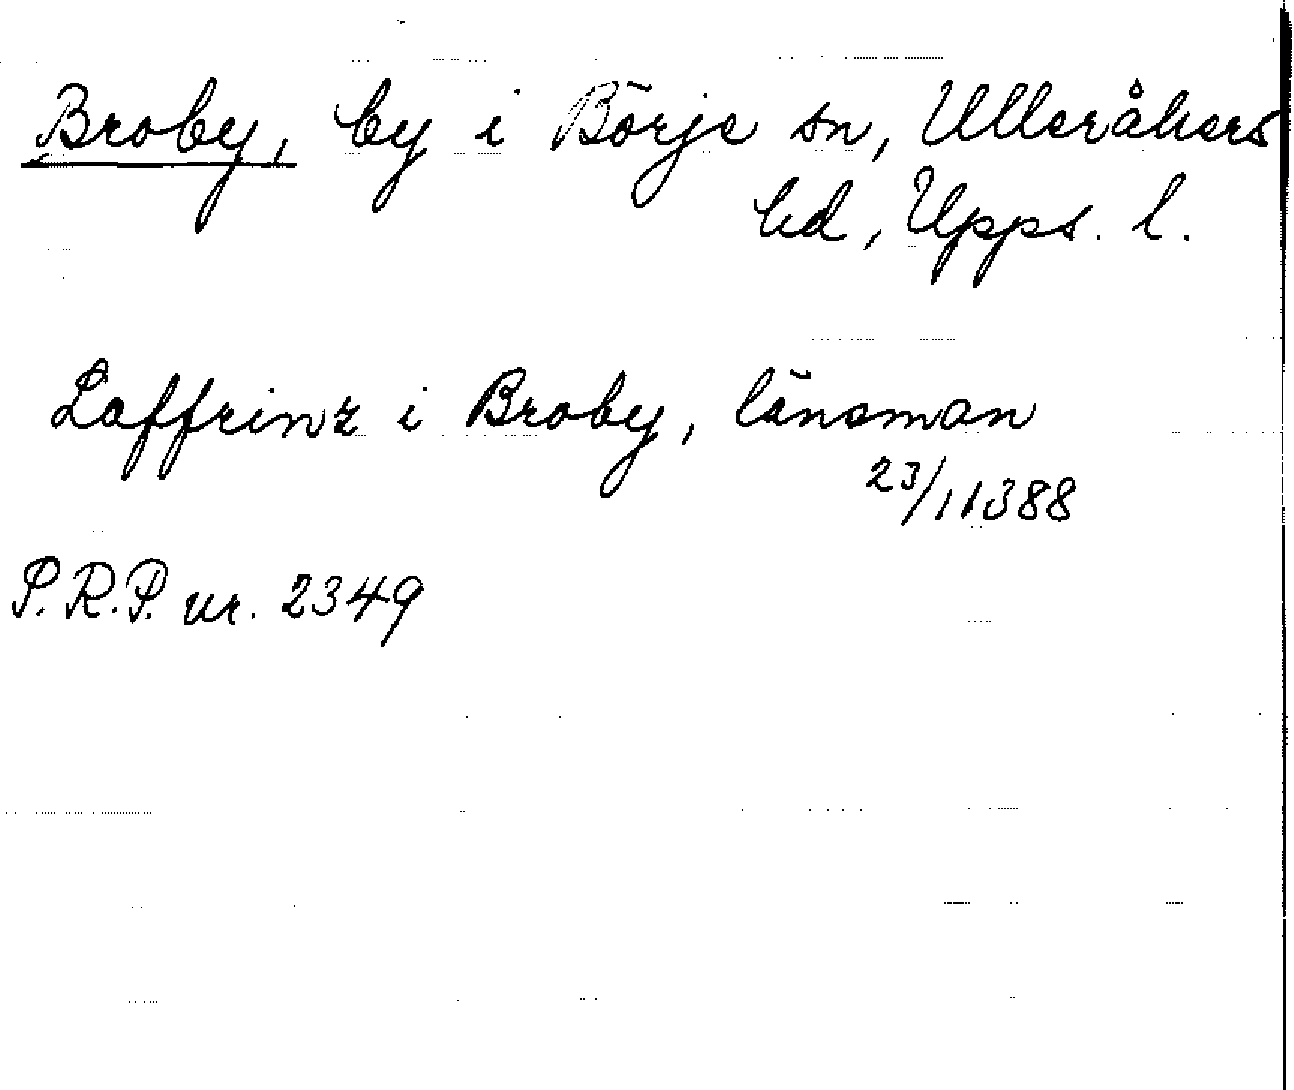 Broby, by i Börje sn, Ulleråkers
hd, Upps. l.
Laffrinz i Broby, länsman
23/1 1388
P.R.P. nr. 2349